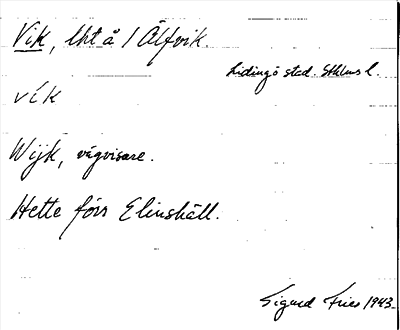 Vik, lht å 1 Älfvik.
Lidingö stad. Sthlms l.
vík
Wijk, vägvisare.
Hette förr Elinshäll.
Sigurd Fries 1943.